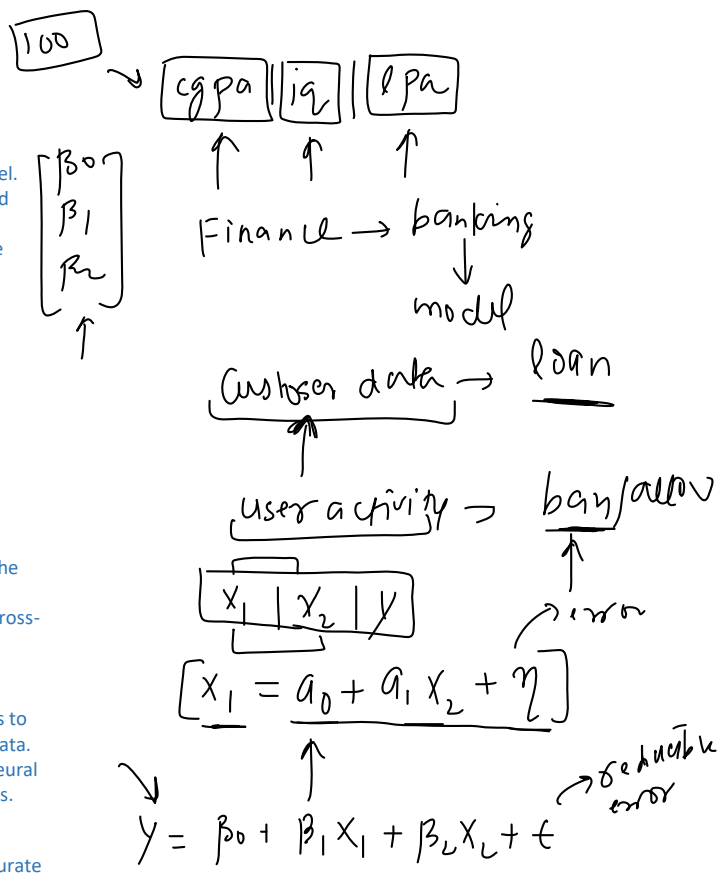 100
cgpa | iq | lpa
el.
d
e
β0
β1
β2
Finance → banking
model
data → loan
user activity → ban/allow
he
ross-
X1 | X2 | Y
error
[X1 = a0 + a1 X2 + η]
s to
ata.
eural
s.
reducible error
Y = β0 + β1 X1 + β2 X2 + ϵ
urate